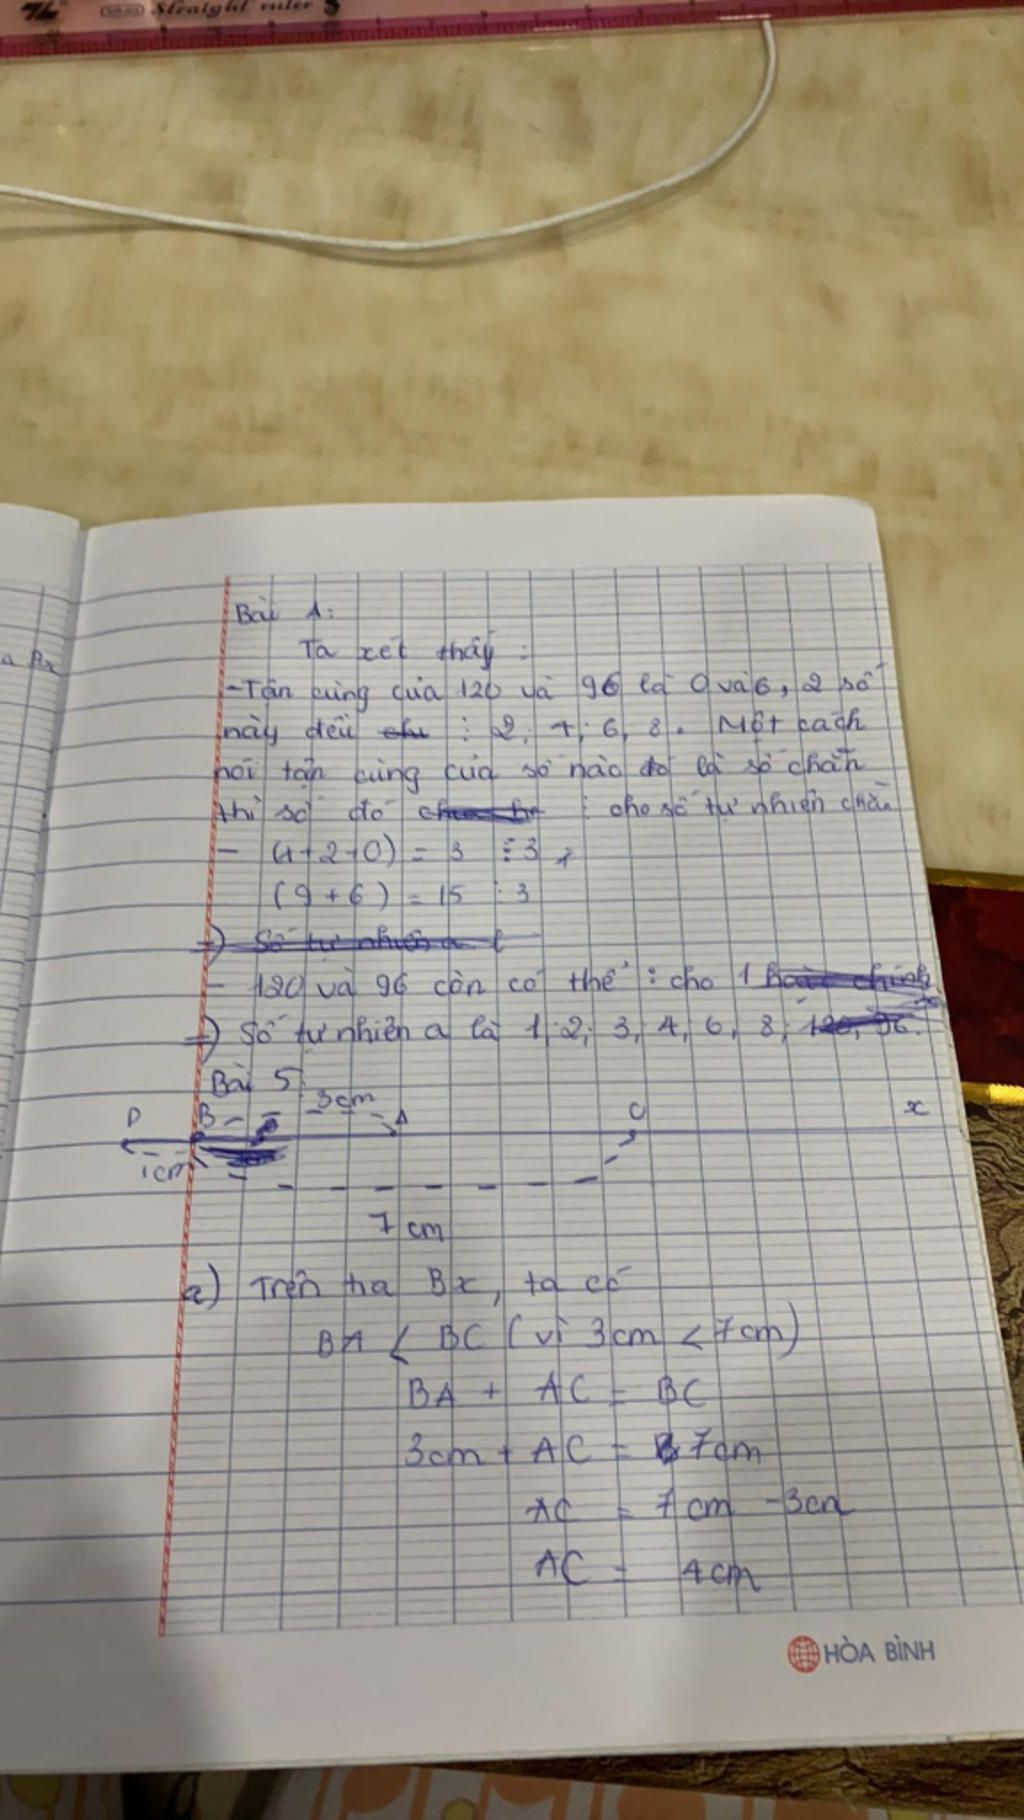 Straight ruler
Bài 1:
Ta xét thấy :
-Tận cùng của 120 và 96 là 0 và 6, 2 số
này đều ⋮ 2, 4, 6, 8. Một cách
nói tận cùng của số nào đó là số chẵn
thì số đó ⋮ cho số tự nhiên chẵn
- (1+2+0) = 3 ⋮ 3,
(9+6) = 15 ⋮ 3
=) Số tự nhiên a l
- 120 và 96 còn có thể ⋮ cho 1
=) Số tự nhiên a là 1, 2, 3, 4, 6, 8, 120, 96.
Bài 5
D B 3cm A C x
1cm
7 cm
a) Trên tia Bx, ta có
BA < BC (vì 3cm < 7cm)
BA + AC = BC
3cm + AC = 7cm
AC = 7cm - 3cm
AC = 4cm
HÒA BÌNH